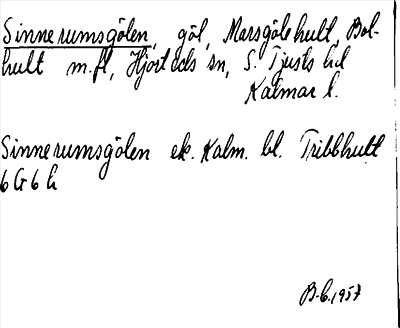 Sinnerumsgölen, göl, Mersgölehult, Bol-
hult m.fl, Hjorteds sn, S. Tjusts hd
Kalmar l.
Sinnerumsgölen ek. Kalm. bl. Tribbhult
6 G 6 h
B-C. 1957